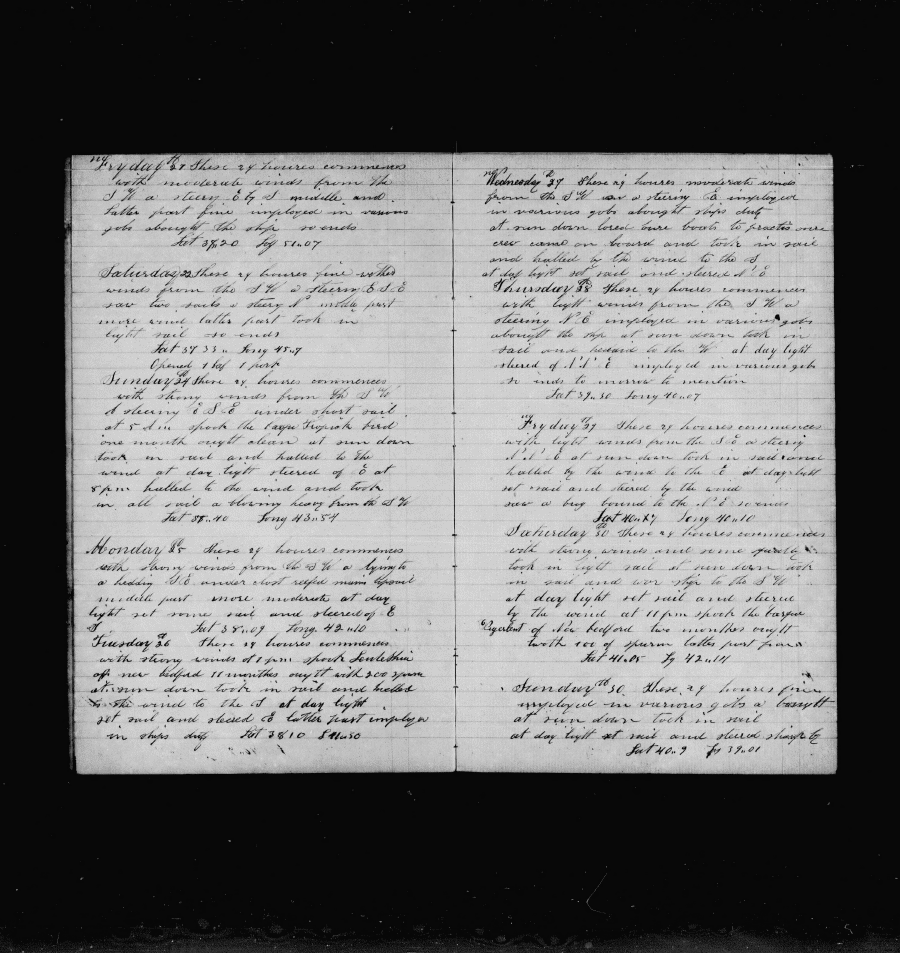 Fryday 27 These 24 houres commences
with moderate winds from the
S W a steery E by S middle and
latter part fine imployed in various
gobs abought the ship so ends
Lat 38,20 Lg 51,,07
Saturday These 24 houres fine
winds from the S W a steering E S E
saw two sails a steery N midle part
more wind latter part took in
light sail so ends
Lat 37 33,, Long 45,,7
Opened 1 1 pork
Sunday 24 These 24 houres commences
with strong winds from the S W
A steering E S E under short sail
at 5 spook the barque Tropick bird
one month ought clean at sun down
took in sail and halled to the
wind at day light steered of E at
8 pm halled to the wind and took
in all sail a blowing heavy from the S W
Lat 38,,40 Long 43,,54
Monday 25 These 24 houres commences
with strong winds from the S W a lying to
a heding S E under clost reefed main topsail
middle part more moderate at day
light set some sail and steered of E
S Lat 38,,09 Long 42,,10
Tuesday 26 These 24 houres commences
with strong winds at 1 pm spook
of new bedford 11 monthes ought with 200 sperm
at sun down took in sail and halled
to the wind to the S at day light
set sail and steered E latter part imployed
in ships duty Lat 38 10 41,,50
Wednesday 27 These 24 houres moderate winds
from the S W a steering E imployed
in various gobs abought ships duty
at sun down lored bots to practis
crew came on board and took in sail
and halled by the wind to the S
at day light set sail and steered N E
Thursday 28 These 24 houres commences
with light winds from the S W a
steering N E imployed in various gobs
abought the ship at sun down took in
sail and to the W at day light
steered of N N E imployed in various gobs
so ends to morrow to mention
Lat 39,,30 Long 40,,07
Fryday 29 These 24 houres commences
with light winds from the S E a steery
N N E at sun down took in sail and
halled by the wind to the E at day light
set sail and steered by the wind
saw a brig bound to the N E so ends
Lat 40,,17 Long 40,,10
Saturday 30 These 24 houres commences
with strong winds and some
took in light sail at sun down took
in sail and wor ship to the S W
at day light set sail and steered
by the wind at 11 pm spook the barque
of New bedford two monthes ought
with 100 of sperm latter part
Lat 41,,05 Lg 42,,14
Sunday 30 These 24 houres fine
imployed in various gobs a bought
at sun down took in sail
at day light set sail and steered sharp by
Lat 40,,9 Lg 39,,01